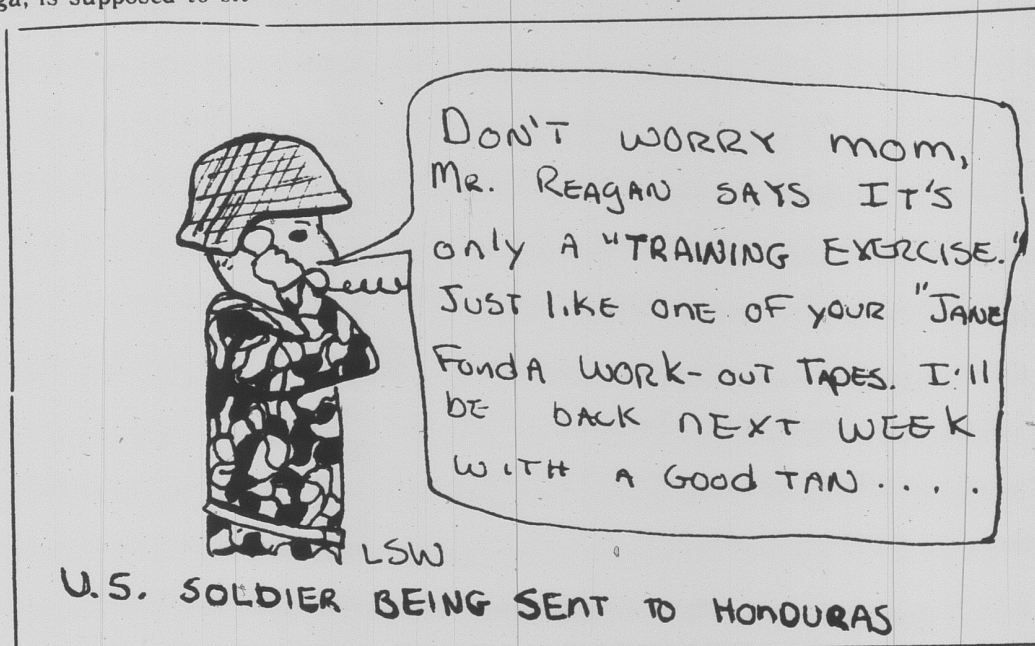 is supposed to
DON'T WORRY MOM,
MR. REAGAN SAYS IT'S
ONLY A "TRAINING EXERCISE."
JUST LIKE ONE OF YOUR "JANE
FONDA WORK-OUT TAPES. I'll
BE BACK NEXT WEEK
WITH A GOOD TAN....
LSW
U.S. SOLDIER BEING SENT TO HONDURAS